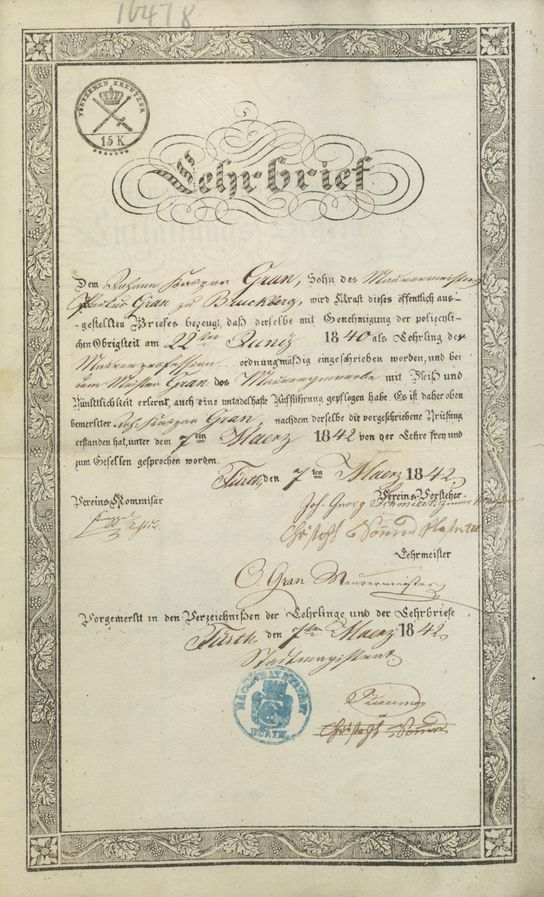 16478
FÜNFZEHEN KREUTZER
15 K
Lehrbrief
Dem Johann Kaspar Gran, Sohn des Maurermeisters
Gran zu Bruckberg, wird Kraft dieses öffentlich aus-
-gestellten Briefes bezeugt, daß derselbe mit Genehmigung der polizeyli-
chen Obrigkeit am 22ten Juniz 1840 als Lehrling der
Maurerprofession ordnungmäßig eingeschrieben worden, und bei
dem Meister Gran das Maurergewerbe mit Fleiß und
Pünktlichkeit erlernt, auch eine untadelhafte Aufführung gepflogen habe. Es ist daher oben
bemerkter Joh. Kaspar Gran, nachdem derselbe die vorgeschriebene Prüfung
erstanden hat, unter dem 7ten Maerz 1842 von der Lehre frey und
zum Gesellen gesprochen worden.
Fürth, den 7ten Maerz 1842
Vereins Kommisär
Vereins-Vorsteher
Joh. Georg Schmidt
Christoph
Lehrmeister
C. Gran Maurermeister
Vorgemerkt in den Verzeichnißen der Lehrlinge und der Lehrbriefe
Fürth, den 7ten Maerz 1842
Stadtmagistrat
FÜRTH
Christoph